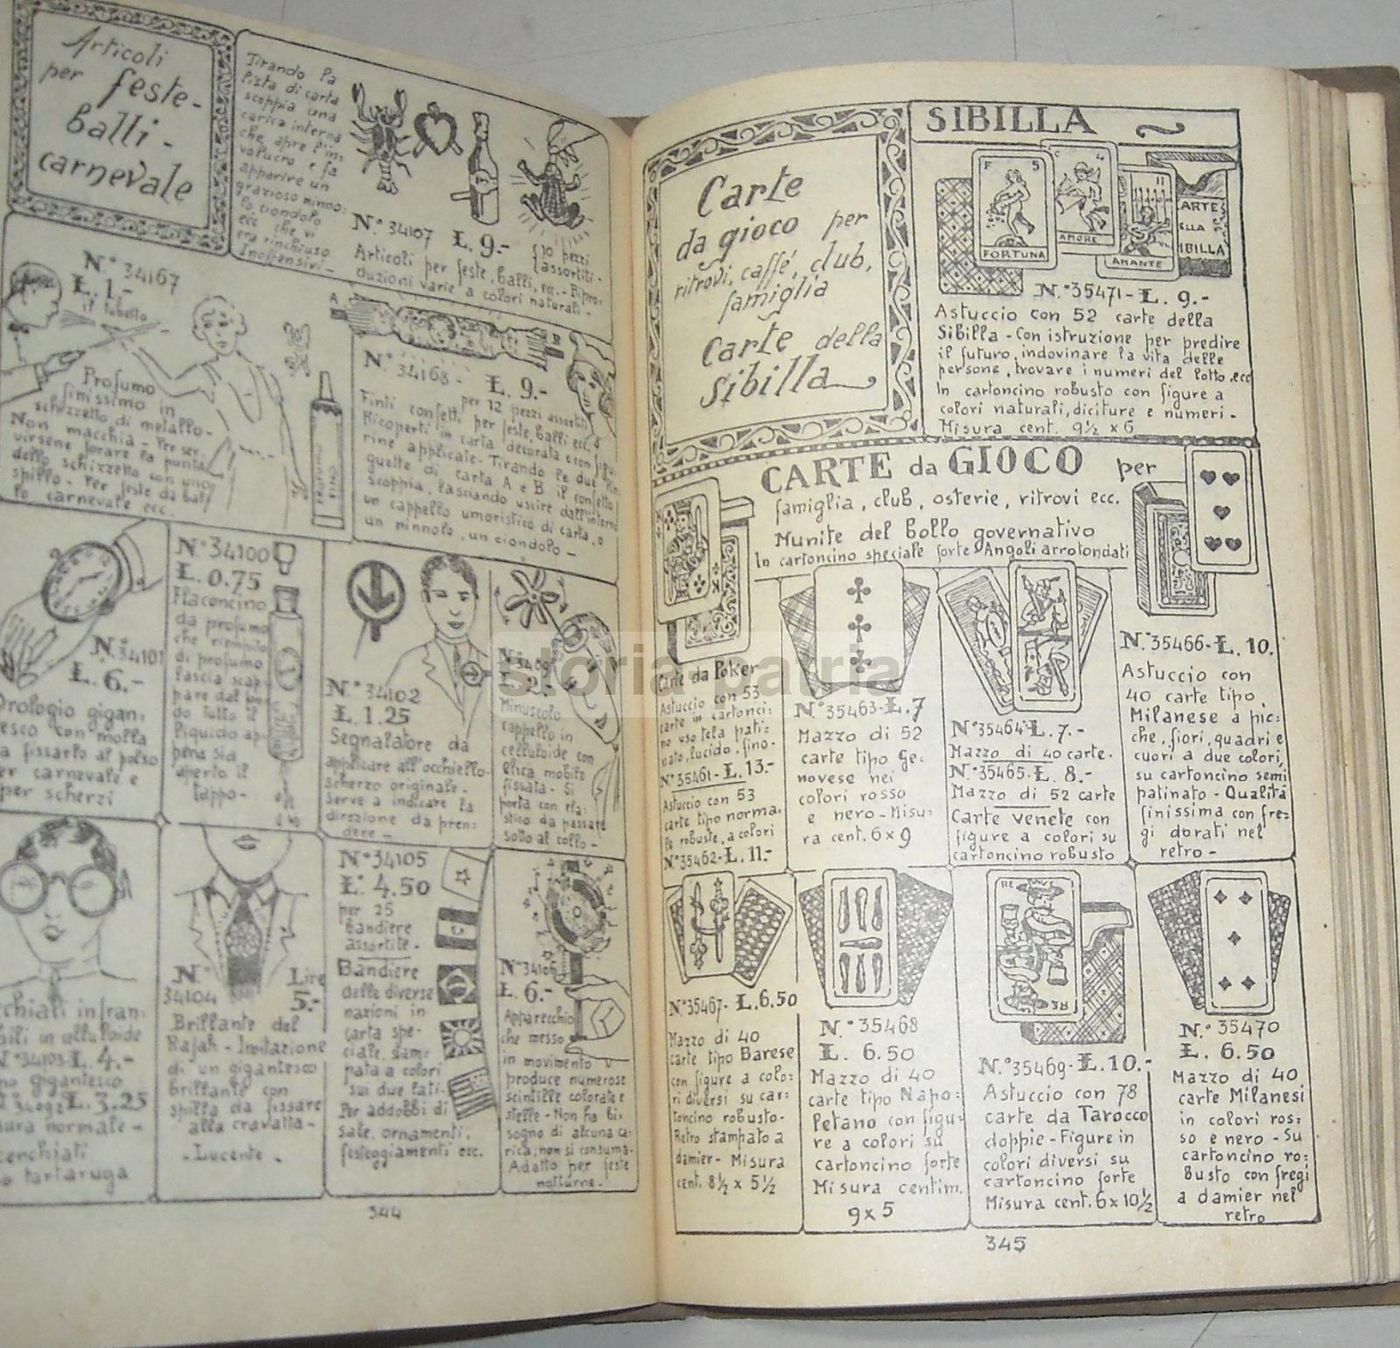 Articoli
per feste-
balli-
carnevale
Tirando la
lista di carta
scoppia una
carica interna
che apre l'in-
volucro e fa
apparire un
grazioso ninno:
lo ciondolo
ecc che vi
era rinchiuso
Inoffensivi-
N° 34107 L. 9.-
(10 pezzi
(assortiti-
Articoli per feste, balli, ecc.- Ripro:
duzioni varie a colori naturali-
N° 34167
L. 1.-
il tubetto
Profumo
finissimo in
schizzetto di metallo-
Non macchia - Per ser:
virsene forare la punta
dello schizzetto con uno
spillo - Per feste da bal:
lo carnevale ecc.
A
B
N° 34168 - L. 9.-
per 12 pezzi assortiti
Finti confetti, per feste, balli ecc.
Ricoperti in carta decorata e con figu:
rine applicate - Tirando le due lin:
guette di carta A e B il confetto
scoppia, lasciando uscire dall'interno
un cappello umoristico di carta, o
un ninnolo, un ciondolo -
N° 34101
L. 6.-
Orologio gigan:
tesco con molla
a fissarlo al polso
per carnevale e
per scherzi
N° 34100
L. 0.75
Flaconcino
da profumo
che riempito
di profumo
lascia scap:
pare dal
do tutto il
liquido ap:
pena sia
aperto il
tappo -
N° 34102
L. 1.25
Segnalatore da
applicare all'occhiello
scherzo originale-
serve a indicare la
direzione da pren:
dere -
Minuscolo
cappello in
celluloide con
elica mobile
fissata - Si
porta con ela:
stico da passare
sotto al collo -
occhiali infran:
gibili in celluloide
N° 34103 L. 4.-
gigantesco
L. 3.25
misura normale -
cerchiati
tartaruga
N° Lire
34104 5.-
Brillante del
Rajah - Imitazione
di un gigantesco
brillante con
spilla da fissare
alla cravatta -
- Lucente -
N° 34105
L. 4.50
per 25
Bandiere
assortite -
Bandiere
delle diverse
nazioni in
carta spe:
ciale, stam:
pata a colori
sui due lati -
Per addobbi di
sale, ornamenti,
festeggiamenti ecc.
N° 34106
L. 6.-
Apparecchio
che messo
in movimento
produce numerose
scintille colorate e
stelle - Non ha bi:
sogno di alcuna ca:
rica; non si consuma-
Adatto per feste
notturne -
344
Carte
da gioco per
ritrovi, caffè, club,
famiglia
Carte della
Sibilla
SIBILLA
F 5
FORTUNA
AMORE
AMANTE
CARTE
ELLA
IBILLA
N. °35471 - L. 9.-
Astuccio con 52 carte della
Sibilla - Con istruzione per predire
il futuro, indovinare la vita delle
persone, trovare i numeri del lotto, ecc
In cartoncino robusto con figure a
colori naturali, diciture e numeri -
Misura cent. 9½ x 6
CARTE da GIOCO per
famiglia, club, osterie, ritrovi ecc.
Munite del bollo governativo
In cartoncino speciale forte Angoli arrotondati
Carte da Poker
Astuccio con 53
carte in cartonci:
no uso tela pati:
nato, lucido, fino-
N° 35461 - L. 13.-
Astuccio con 53
carte tipo norma:
le robuste, a colori
N° 35462 - L. 11.-
N° 35463 - L. 7
Mazzo di 52
carte tipo Ge:
novese nei
colori rosso
e nero - Misu:
ra cent. 6 x 9
N° 35464 - L. 7.-
Mazzo di 40 carte -
N° 35465 - L. 8.-
Mazzo di 52 carte
Carte venete con
figure a colori su
cartoncino robusto
N° 35466 - L. 10.
Astuccio con
40 carte tipo
Milanese a pic:
che, fiori, quadri e
cuori a due colori,
su cartoncino semi
patinato - Qualità
finissima con fre:
gi dorati nel
retro -
N° 35467 - L. 6.50
Mazzo di 40
carte tipo Barese
con figure a colo:
ri diversi su car:
toncino robusto -
Retro stampato a
damier - Misura
cent. 8½ x 5½
N.° 35468
L. 6.50
Mazzo di 40
carte tipo Napo:
letano con figu:
re a colori su
cartoncino forte
Misura centim.
9 x 5
RE
RE
N.° 35469 - L. 10.-
Astuccio con 78
carte da Tarocco
doppie - Figure in
colori diversi su
cartoncino forte
Misura cent. 6 x 10½
N.° 35470
L. 6.50
Mazzo di 40
carte Milanesi
in colori ros:
so e nero - Su
cartoncino ro:
busto con fregi
a damier nel
retro
345
storia patria